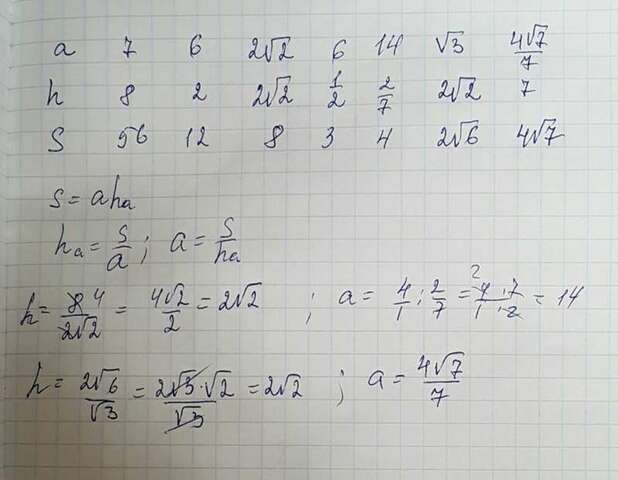 a 7 6 2√2 6 14 √3 4√7/7
h 8 2 2√2 1/2 2/7 2√2 7
S 56 12 8 3 4 2√6 4√7
S = aha
ha = S/a ; a = S/ha
h = 8 4/2√2 = 4√2/2 = 2√2 ; a = 4/1 : 2/7 = 2 4·7/1·2 = 14
h = 2√6/√3 = 2√3·√2/√3 = 2√2 ; a = 4√7/7